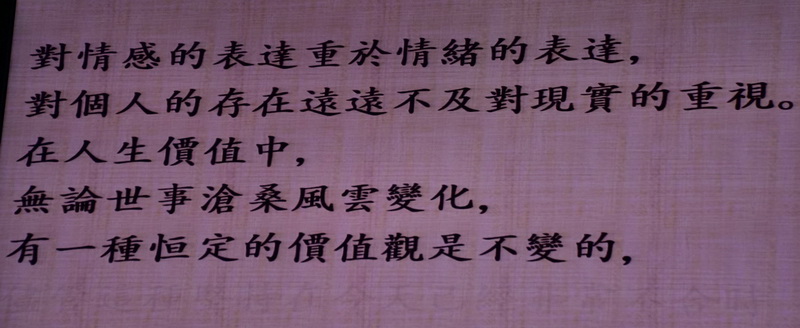 對情感的表達重於情緒的表達，
對個人的存在遠遠不及對現實的重視。
在人生價值中，
無論世事滄桑風雲變化，
有一種恒定的價值觀是不變的，